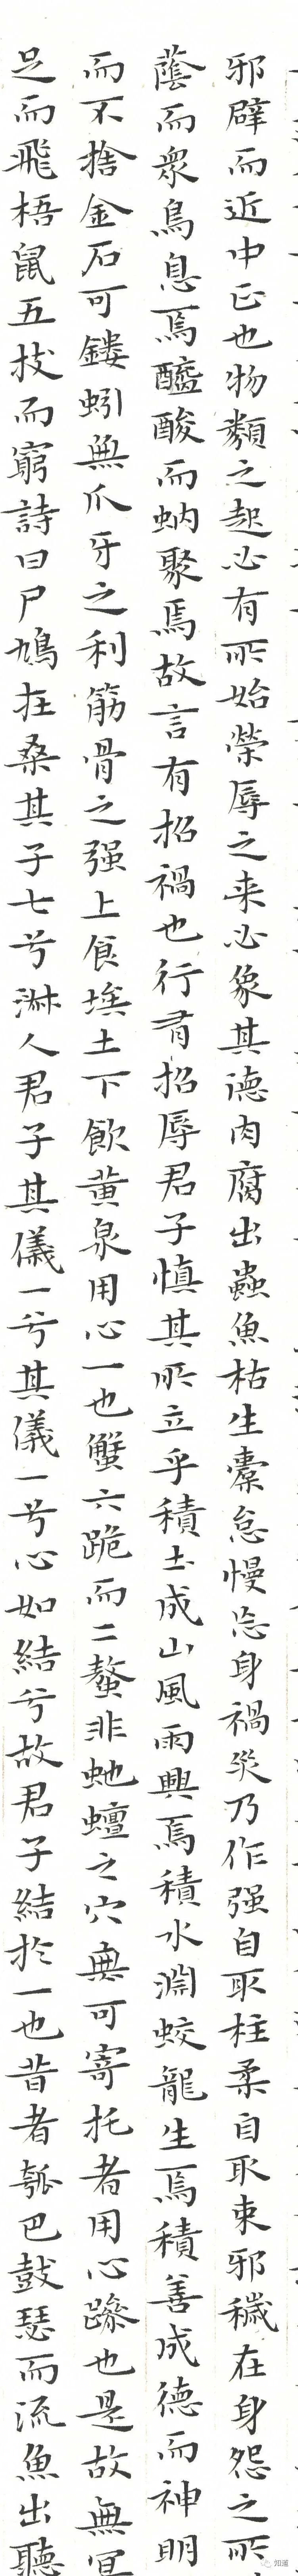 邪辟而近中正也物類之起必有所始榮辱之来必象其德肉腐出蟲魚枯生蠹怠慢忘身禍災乃作强自取柱柔自取束邪穢在身怨之所
蔭而衆鳥息焉醯酸而蚋聚焉故言有招禍也行有招辱君子慎其所立乎積土成山風雨興焉積水成淵蛟龍生焉積善成德而神明
而不捨金石可鏤蚓無爪牙之利筋骨之强上食埃土下飲黄泉用心一也蟹六跪而二螯非虵蟺之穴無可寄托者用心躁也是故無冥
足而飛梧鼠五技而窮詩曰尸鳩在桑其子七兮淋人君子其儀一兮其儀一兮心如結兮故君子結於一也昔者瓠巴鼓瑟而流魚出聽
知道